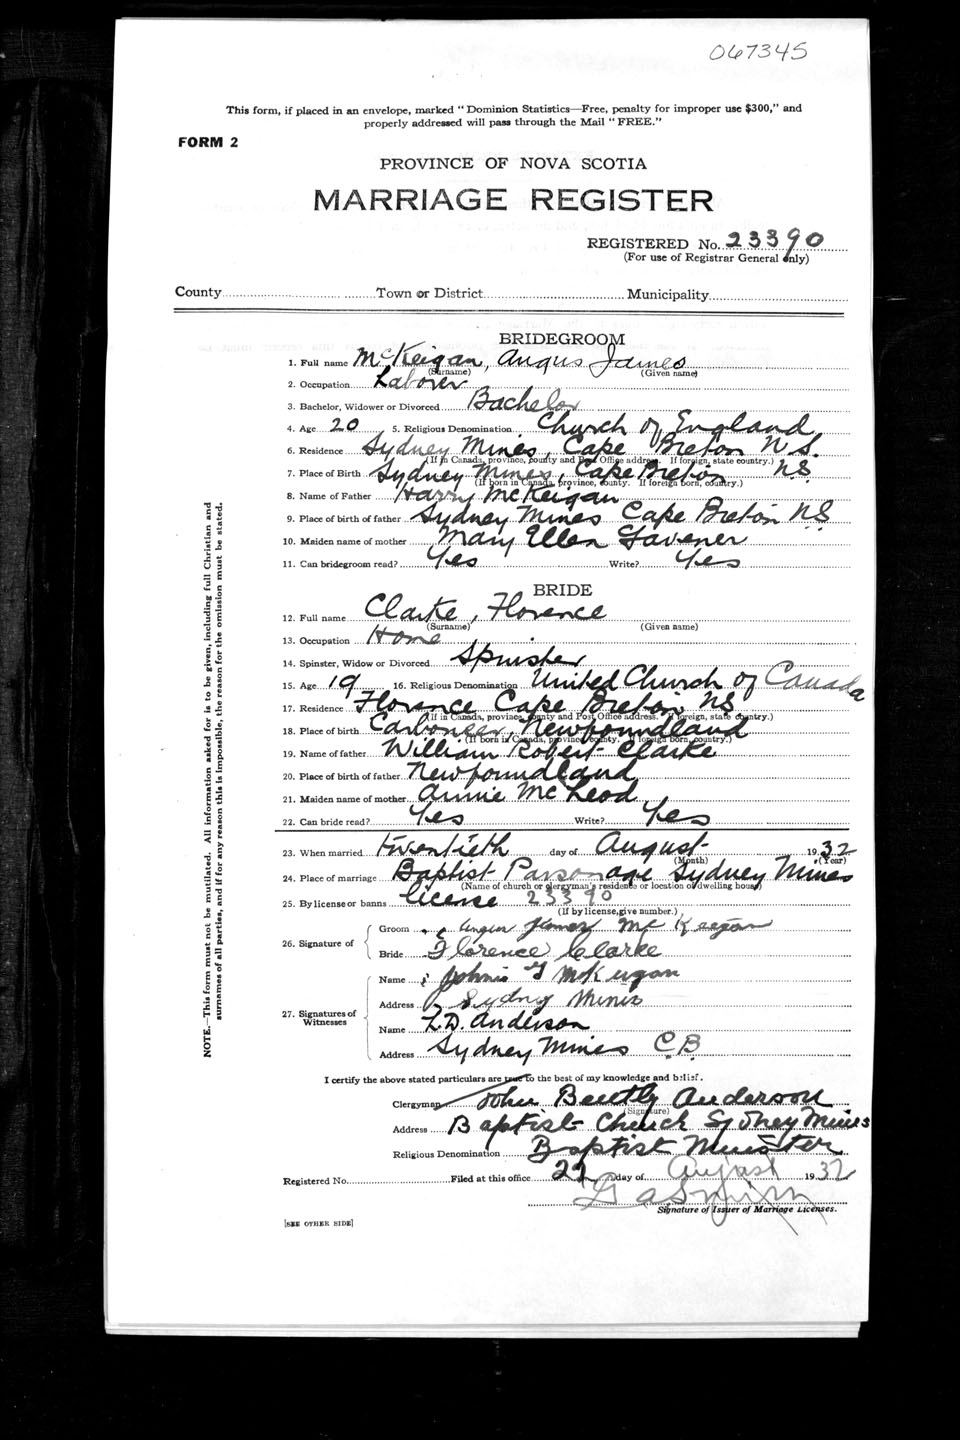 067345
This form, if placed in an envelope, marked "Dominion Statistics—Free, penalty for improper use $300," and
properly addressed will pass through the Mail "FREE."
FORM 2
PROVINCE OF NOVA SCOTIA
MARRIAGE REGISTER
REGISTERED No. 23390
(For use of Registrar General only)
County Town or District Municipality
BRIDEGROOM
1. Full name McKeigan, Angus James
(Surname) (Given name)
2. Occupation Laborer
3. Bachelor, Widower or Divorced Bachelor
4. Age 20 5. Religious Denomination Church of England
6. Residence Sydney Mines, Cape Breton N.S.
(If in Canada, province, county and Post Office address. If foreign, state country.)
7. Place of Birth Sydney Mines, Cape Breton N.S.
(If born in Canada, province, county. If foreign born, country.)
8. Name of Father Harry McKeigan
9. Place of birth of father Sydney Mines Cape Breton N.S
10. Maiden name of mother Mary Ellen Lavener
11. Can bridegroom read? Yes Write? Yes
BRIDE
12. Full name Clarke, Florence
(Surname) (Given name)
13. Occupation Home
14. Spinster, Widow or Divorced Spinster
15. Age 19 16. Religious Denomination United Church of Canada
17. Residence Florence Cape Breton NS
(If in Canada, province, county and Post Office address. If foreign, state country.)
18. Place of birth Carbonear, Newfoundland
(If born in Canada, province, county. If foreign born, country.)
19. Name of father William Robert Clarke
20. Place of birth of father Newfoundland
21. Maiden name of mother Annie McLeod
22. Can bride read? Yes Write? Yes
23. When married twentieth day of August 1932
(Month) (Year)
24. Place of marriage Baptist Parsonage Sydney Mines
(Name of church or clergyman's residence or location of dwelling house)
25. By license or banns license 23390
(If by license, give number.)
26. Signature of
Groom Angus James McKeegan
Bride Florence Clarke
27. Signatures of Witnesses
Name Johnie McKeigan
Address Sydney Mines
Name L.D. Anderson
Address Sydney Mines C.B.
I certify the above stated particulars are true to the best of my knowledge and belief.
Clergyman John Bently Anderson
(Signature)
Address Baptist Church Sydney Mines
Religious Denomination Baptist Minister
Registered No. Filed at this office 22 day of August 1932
Signature of Issuer of Marriage Licenses.
[SEE OTHER SIDE]
NOTE.—This form must not be mutilated. All information asked for is to be given, including full Christian and
surnames of all parties, and if for any reason this is impossible, the reason for the omission must be stated.